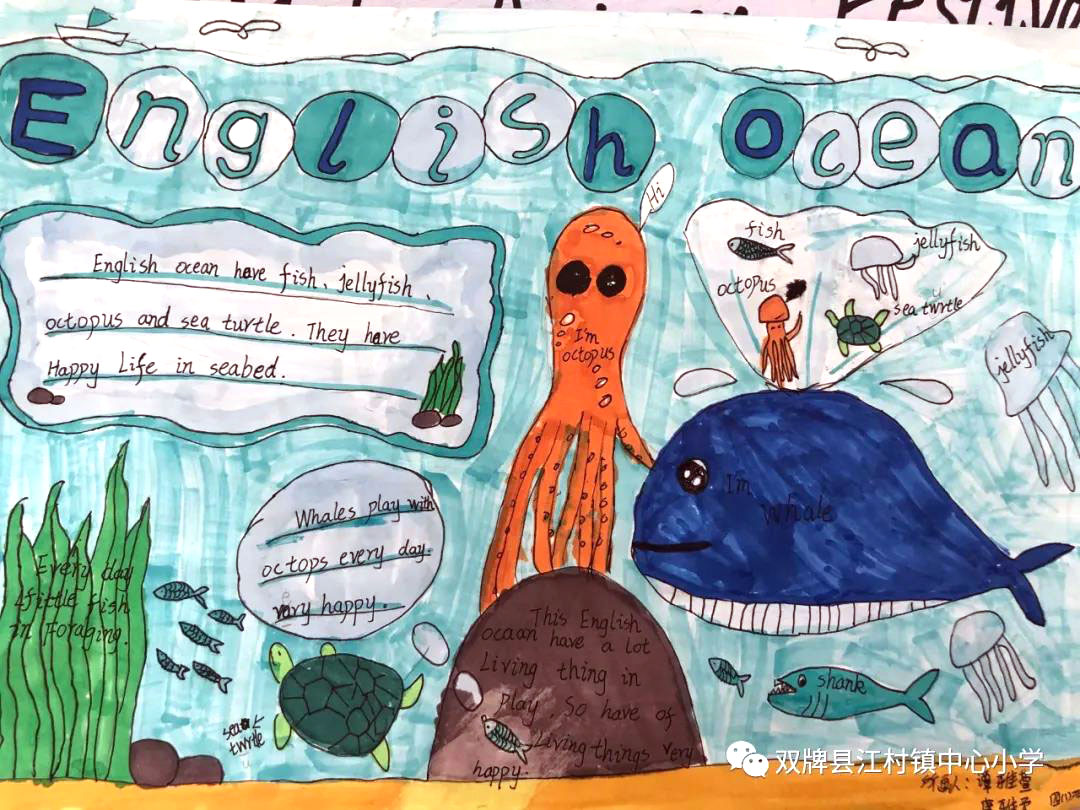 English Ocean
Hi
English ocean have fish、jellyfish、
octopus and sea turtle. They have
Happy Life in seabed.
fish
jellyfish
octopus
sea turtle
I'm
octopus
jellyfish
I'm
whale
Whales play with
octops every day.
very happy.
Every day
little fish
in foraging.
This English
ocaan have a lot
Living thing in
Play. So have of
Living things very
happy.
shank
turtle
双牌县江村镇中心小学